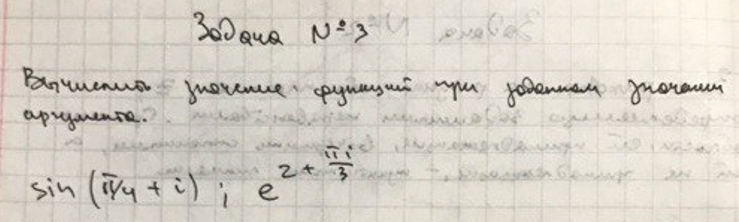 Задача №3
Вычислить значение функций при заданном значении
аргумента.
sin (π/4 + i) ; e^{2 + \frac{πi}{3}}